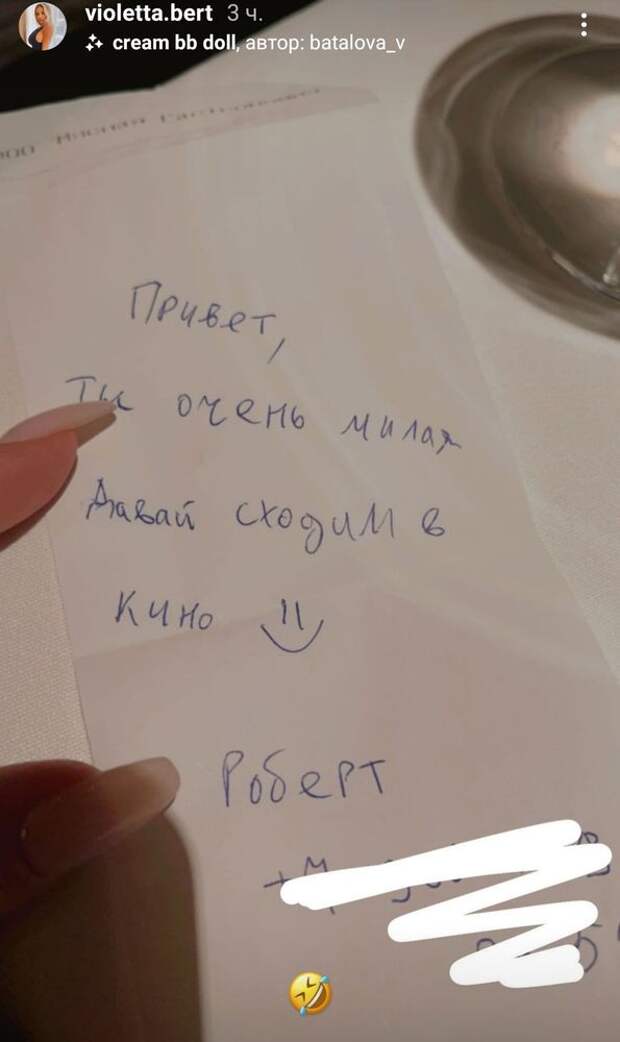 violetta.bert 3 ч.
cream bb doll, автор: batalova_v
ООО
Привет,
Ты очень милая
Давай сходим в
кино
Роберт
+7